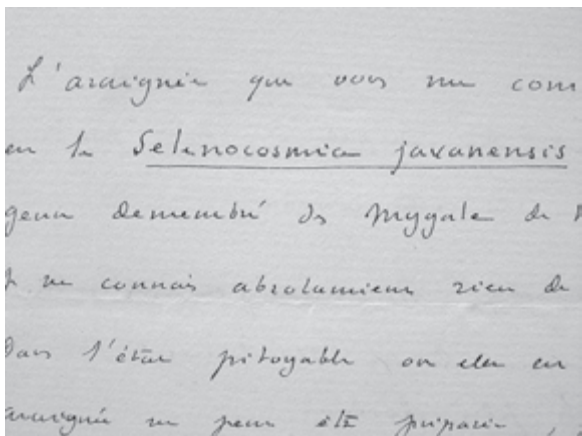 L'araignée que vous me com
en la Selenocosmia javanensis
genre démembré des Mygale de
Je ne connais absolument rien de
Dans l'état pitoyable ou elle en
araignée ne peut été préparée,